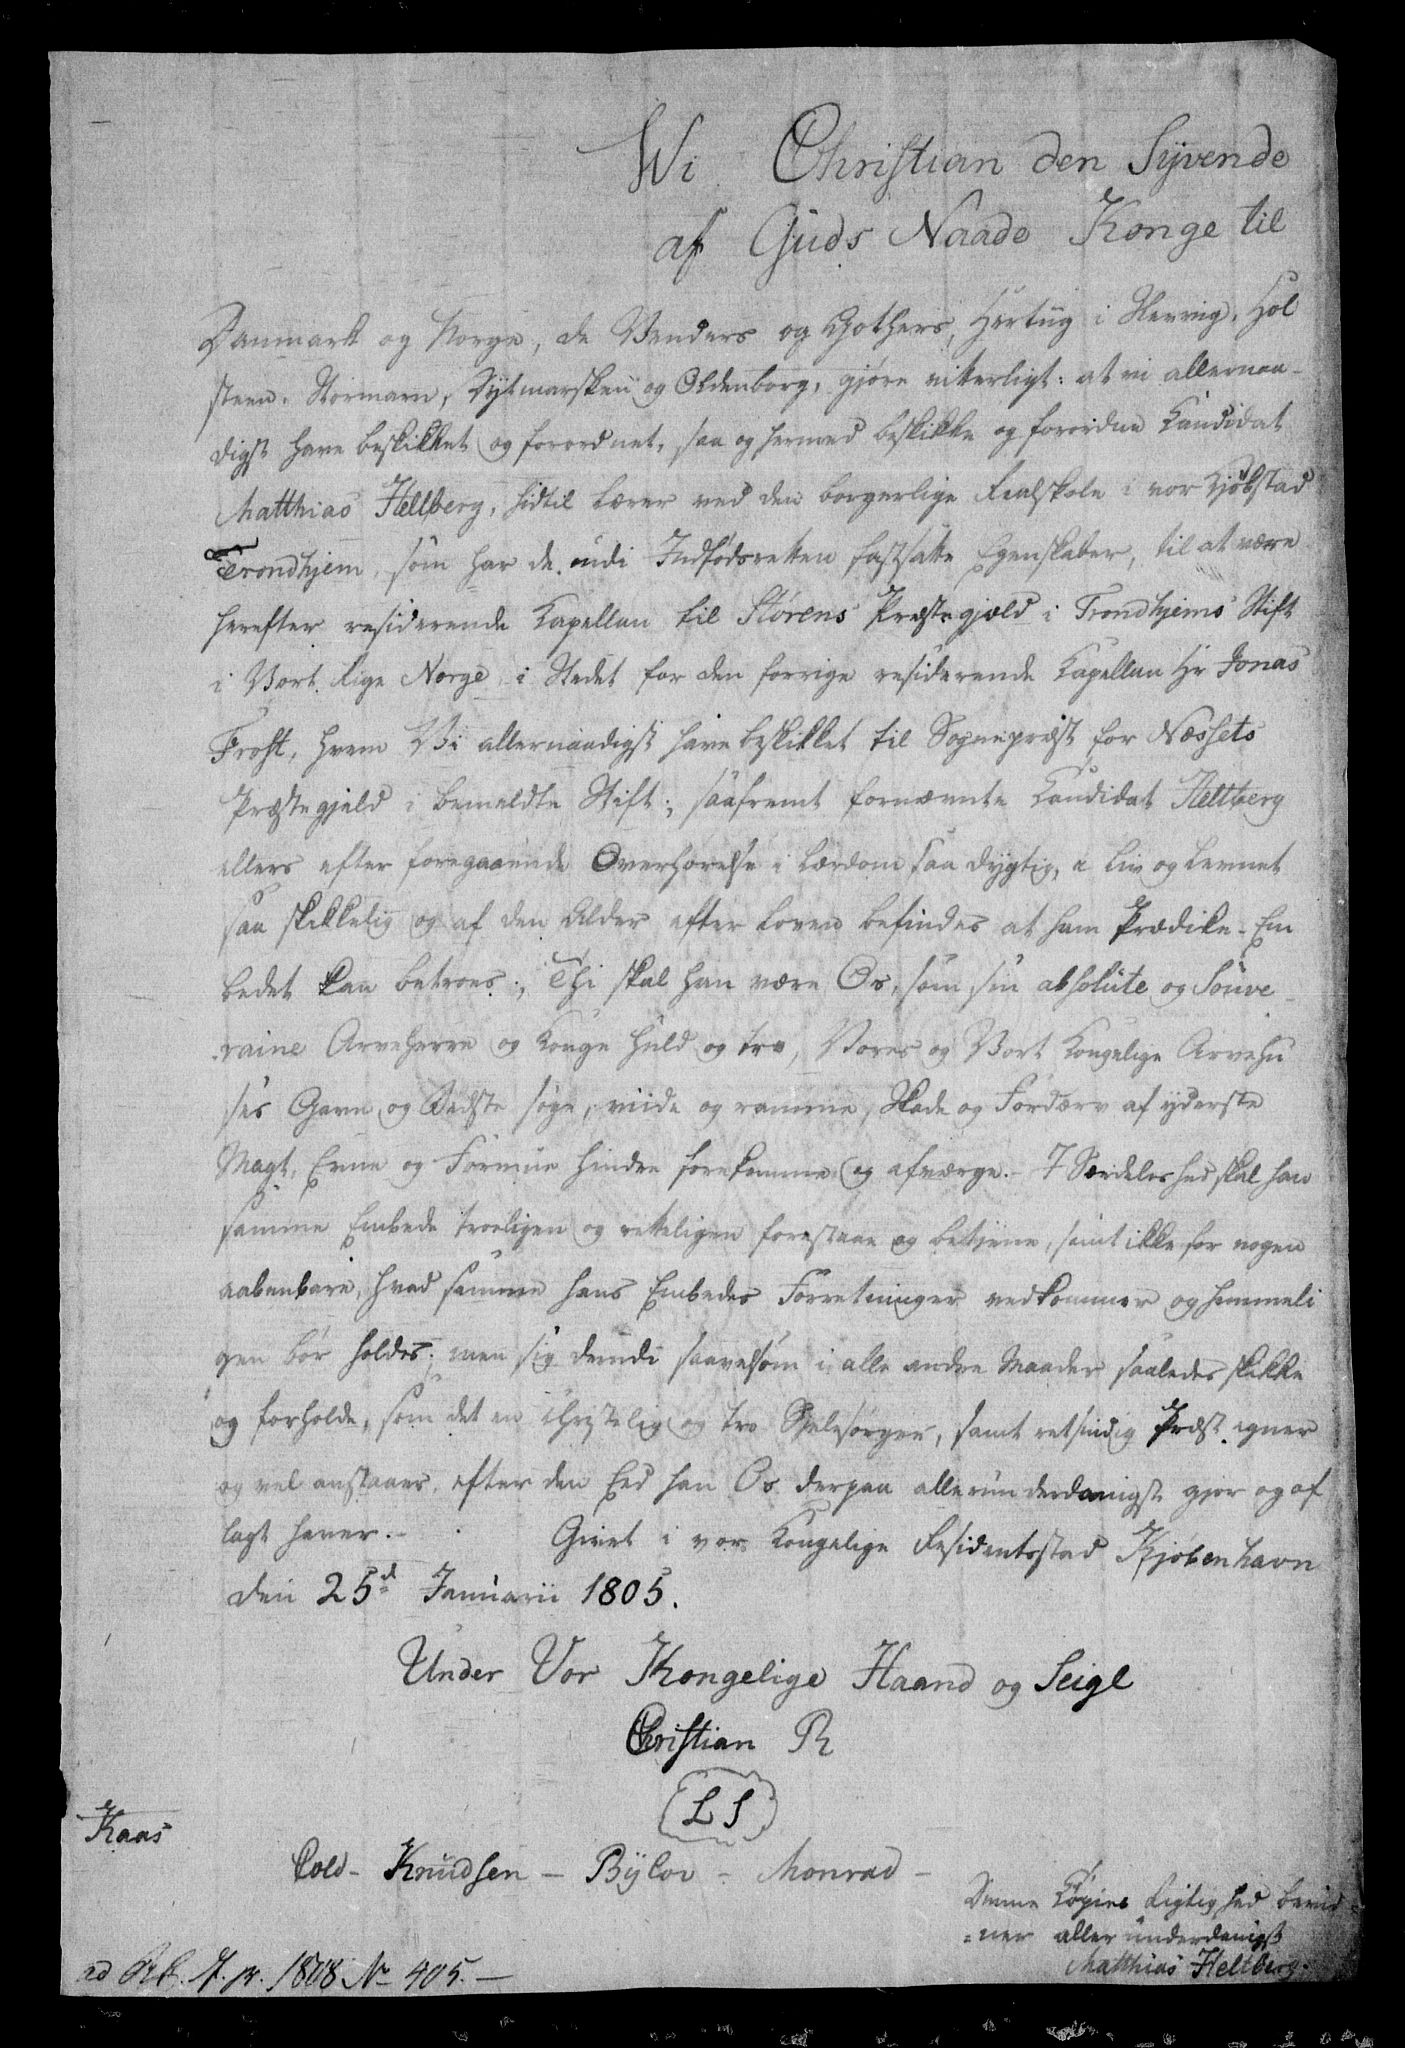 Wi Christian den Syvende
af Guds Naade Konge til
Danmark og Norge, de Venders og Gothers, Hertug i Slesvig, Hol
steen, Stormarn, Dytmarsken og Oldenborg, gjøre vitterligt: at vi allernaa-
digst have beskikket og forordnet, saa og hermed beskikke og forordne Kandidat
Matthias Heltberg, hidtil Lærer ved den borgerlige Realskole i vor Kjøbstad
Trondhjem, som har de udi Indfødsretten fastsatte Egenskaber, til at være
herefter residerende Kapellan til Størens Præstegjæld i Trondhjems Stift
i Vort Rige Norge i Stedet for den forrige residerende Kapellan Hr Jonas
Frost, hvem Vi allernaadigst have beskikket til Sognepræst for Næssets
Præstegjæld i bemeldte Stift; saafremt fornævnte Kandidat Heltberg
ellers efter foregaaende Overhørelse i Lærdom saa dygtig, i Liv og Levnet
saa skikkelig og af den Alder efter Loven befindes at ham Prædike-Em
bedet kan betroes; Thi skal han være Os, som sin absolute og Souve
raine Arveherre og Konge huld og tro, Vores og Vort Kongelige Arvehu
ses Gavn og Bedste søge, vide og ramme, Skade og Fordærv af yderste
Magt, Evne og Formue hindre forekomme og afværge. I Særdeleshed skal han
samme Embede troeligen og retteligen forestaae og betjene, samt ikke for nogen
aabenbare, hvad samme hans Embedes Forretninger vedkommer og hemmeli
gen bør holdes; men sig derudi saavelsom i alle andre Maader saaledes skikke
og forholde, som det en christelig og tro Sjelesørger, samt retsindig Præst egner
og vel anstaaer, efter den Eed han Os derpaa allerunderdanigst gjør og af
lagt haver. Givet i vor Kongelige Residentsstad Kjøbenhavn
den 25d Januarii 1805.
Under Vor Kongelige Haand og Seigl
Christian R
L S
Kaas
Cold - Knudsen - Bülow - Monrad -
Denne Kopies Rigtighed bevid
=ner allerunderdanigst
Matthias Heltberg.
ad Rb. N. pr. 1808 No 405.